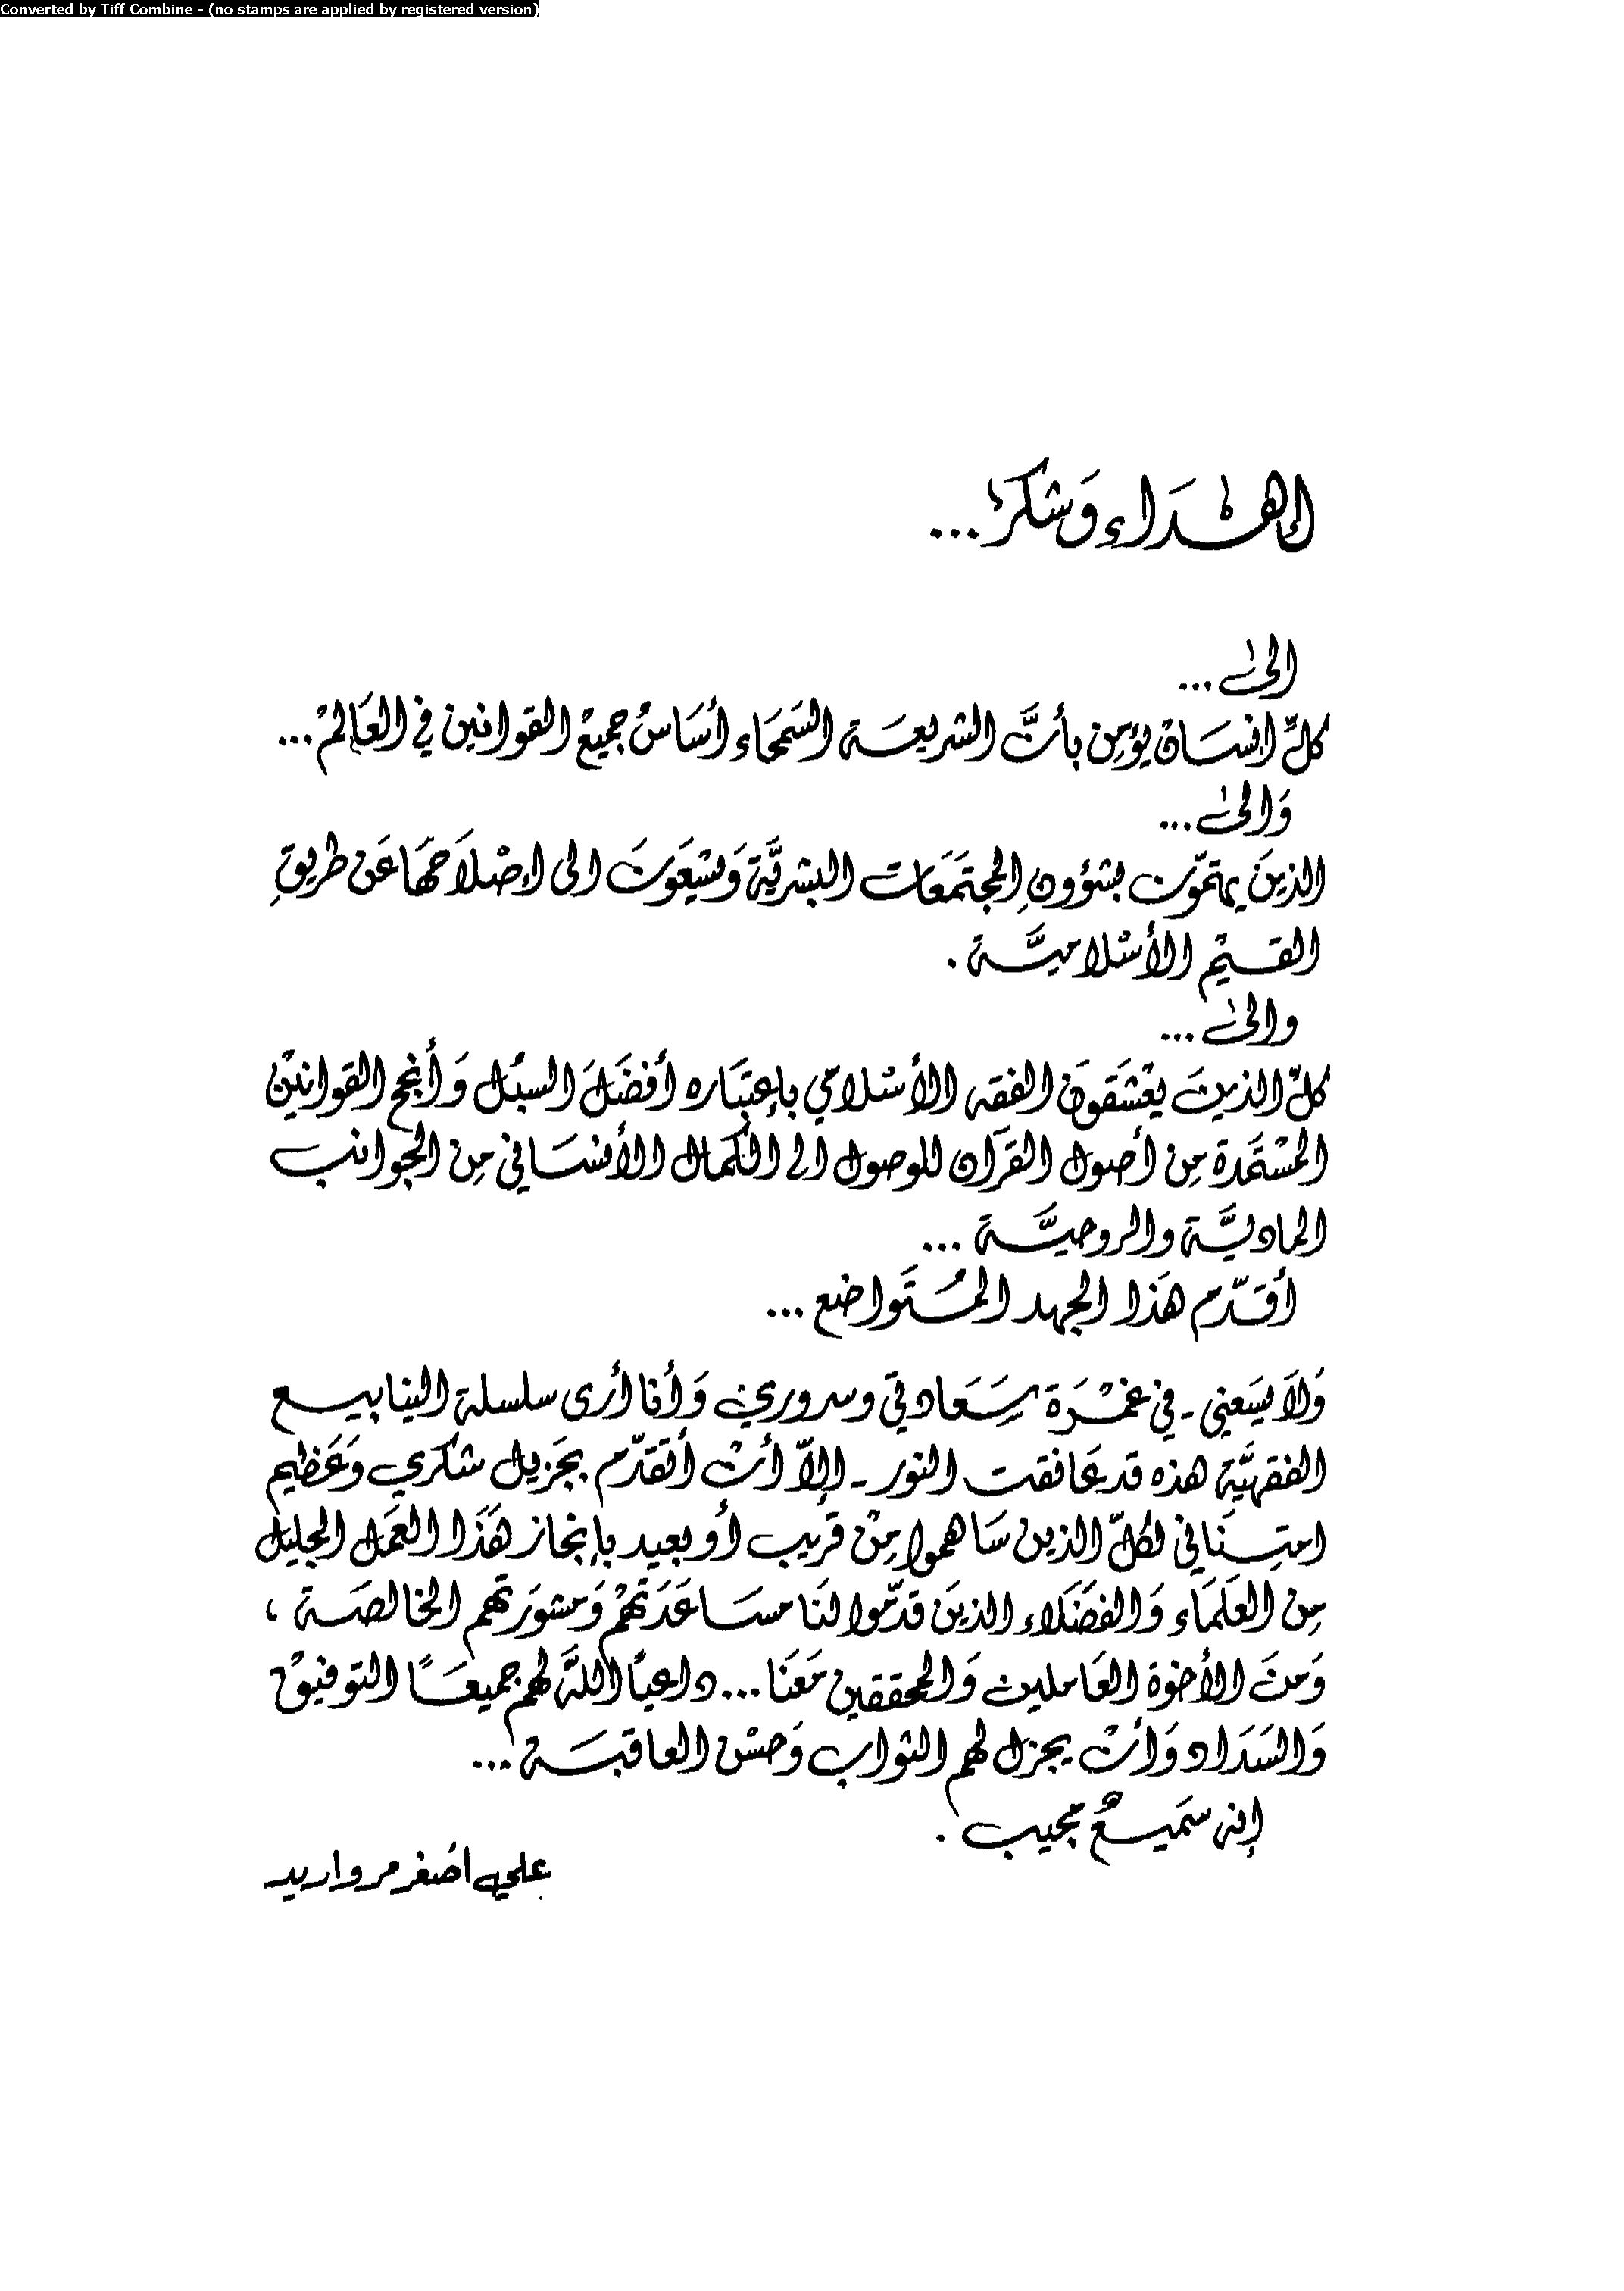 Converted by Tiff Combine - (no stamps are applied by registered version)
إهداء وشكر ...
الى ...
كلّ انسان يؤمن بأنَّ الشريعة السمحاء أساس جميع القوانين في العالم ...
وَالى ...
الذينَ يهتمّون بشؤونِ المجتمَعَات البشريَّة وَيسْعَونَ الى إصْلاَحهَا عَن طريقِ
القيم الأسْلاميَّة .
والى ...
كلّ الذينَ يعْشَقونَ الفقه الأسْلاميّ بإعتبَاره أفضَلَ السبُل وَأنجح القوانيْن
المسْتمَدة مِن أصول القرآن للوصول الى الكمال الأنسَاني مِن الجوانب
الماديَّة والروحيَّة ...
أقدّم هَذا الجهد المُتَواضع ...
وَلاَ يسَعني - في غمْرَة سَعَادتي وسروري وَأنا أرى سلسلة الينابيع
الفقهيَّة هذه قد عَانقت النور - إلاّ أنْ أتقدّم بجَزيل شكري وَعَظيم
امتِنَاني لكلّ الذين سَاهموا مِنْ قريب أو بعيد بإنجاز هَذا العَمَل الجليل
مِن العلمَاء وَالفضَلاء الذينَ قدّموا لنَا مسَاعَدَتهمْ وَمشورَتهم الخالصَة ،
وَمنَ الأخوة العَاملين وَالمحققين مَعَنا ... داعيًا اللَّه لهم جميعًا التوفيق
وَالسَدَاد وَأنْ يجزل لهم الثواب وَحسْن العاقبَة ...
إنه سَميعٌ مجيب .
علي اصغر مرواريد